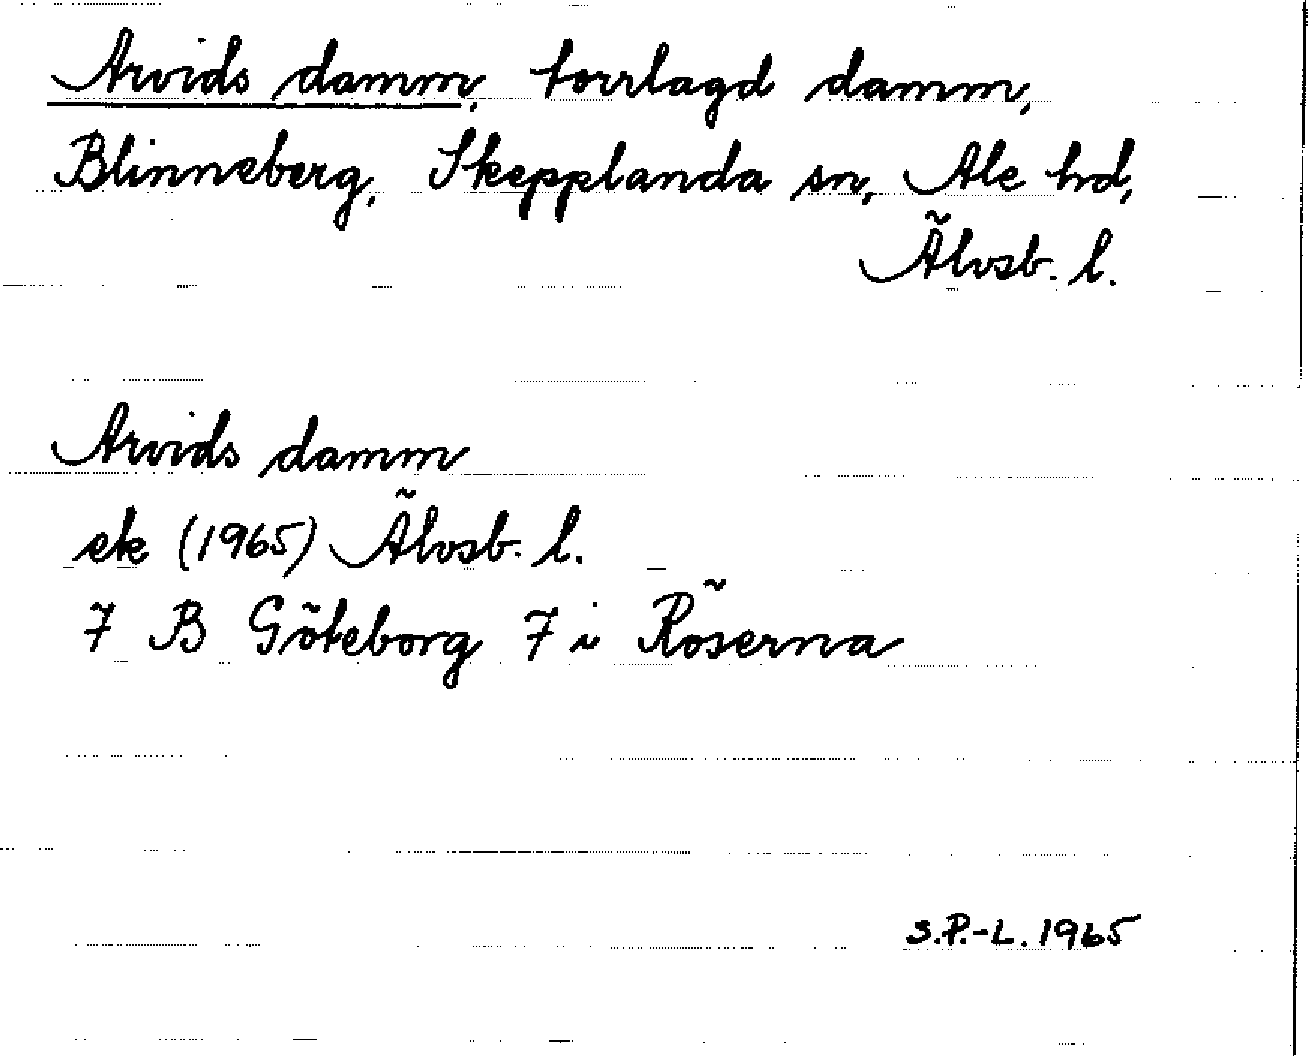 Arvids damm, torrlagd damm,
Blinneberg, Skepplanda sn, Ale hd,
Älvsb. l.
Arvids damm
ek (1965) Älvsb. l.
7 B Göteborg 7 i Röserna
S.P.-L. 1965